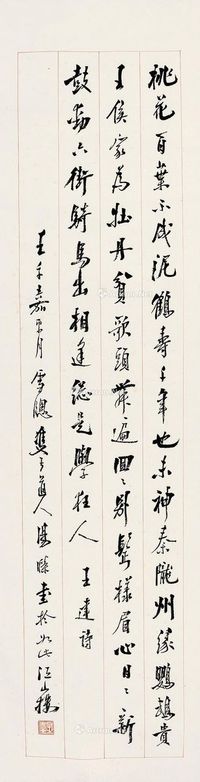 桃花百葉不成泥鶴壽千年也未神秦隴州緣鸚鵡貴
王侯家爲牡丹貧歌頭舞遍回々別鬢樣眉心日々新
鼓動六街騎馬出相逢總是學狂人 王建詩
壬午嘉平月雪聰道人 書於